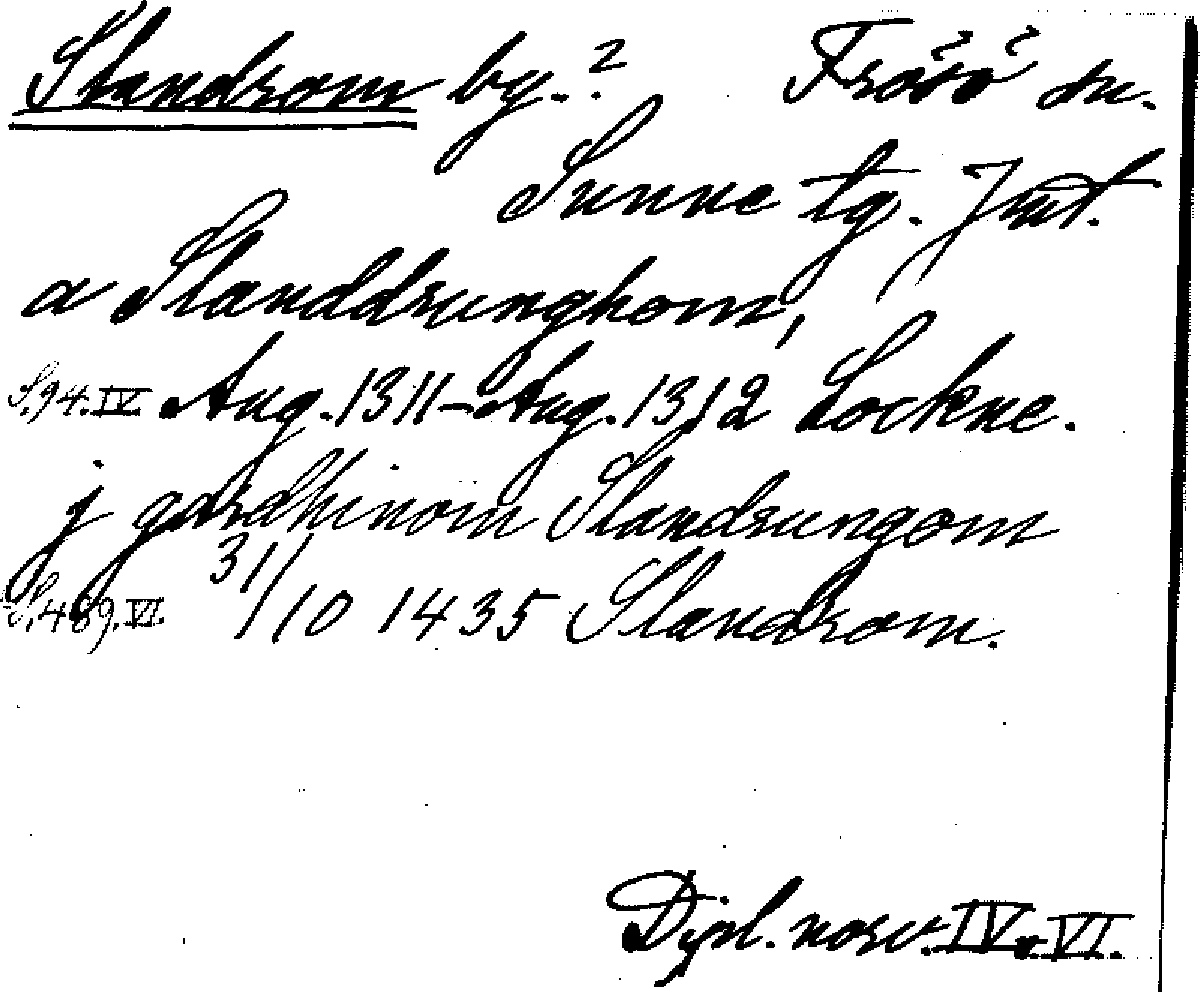 Slandrom by.? Frösö sn.
Sunne tg. Jmt.
a Slanddrunghom,
S.94.IV Aug. 1311–Aug. 1312 Lockne.
j gardhinom Slandrungom
S.489.VI. 31/10 1435 Slandrom.
Dipl. norv. IV o. VI.